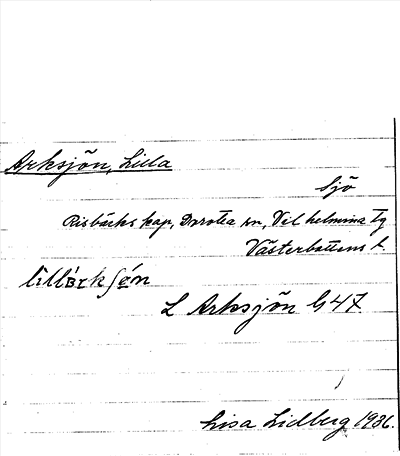 Arksjön, Lilla
Sjö
Risbäcks kap, Dorotea sn, Vilhelmina tg
Västerbottens l.
L Arksjön G47
Lisa Lidberg 1936.